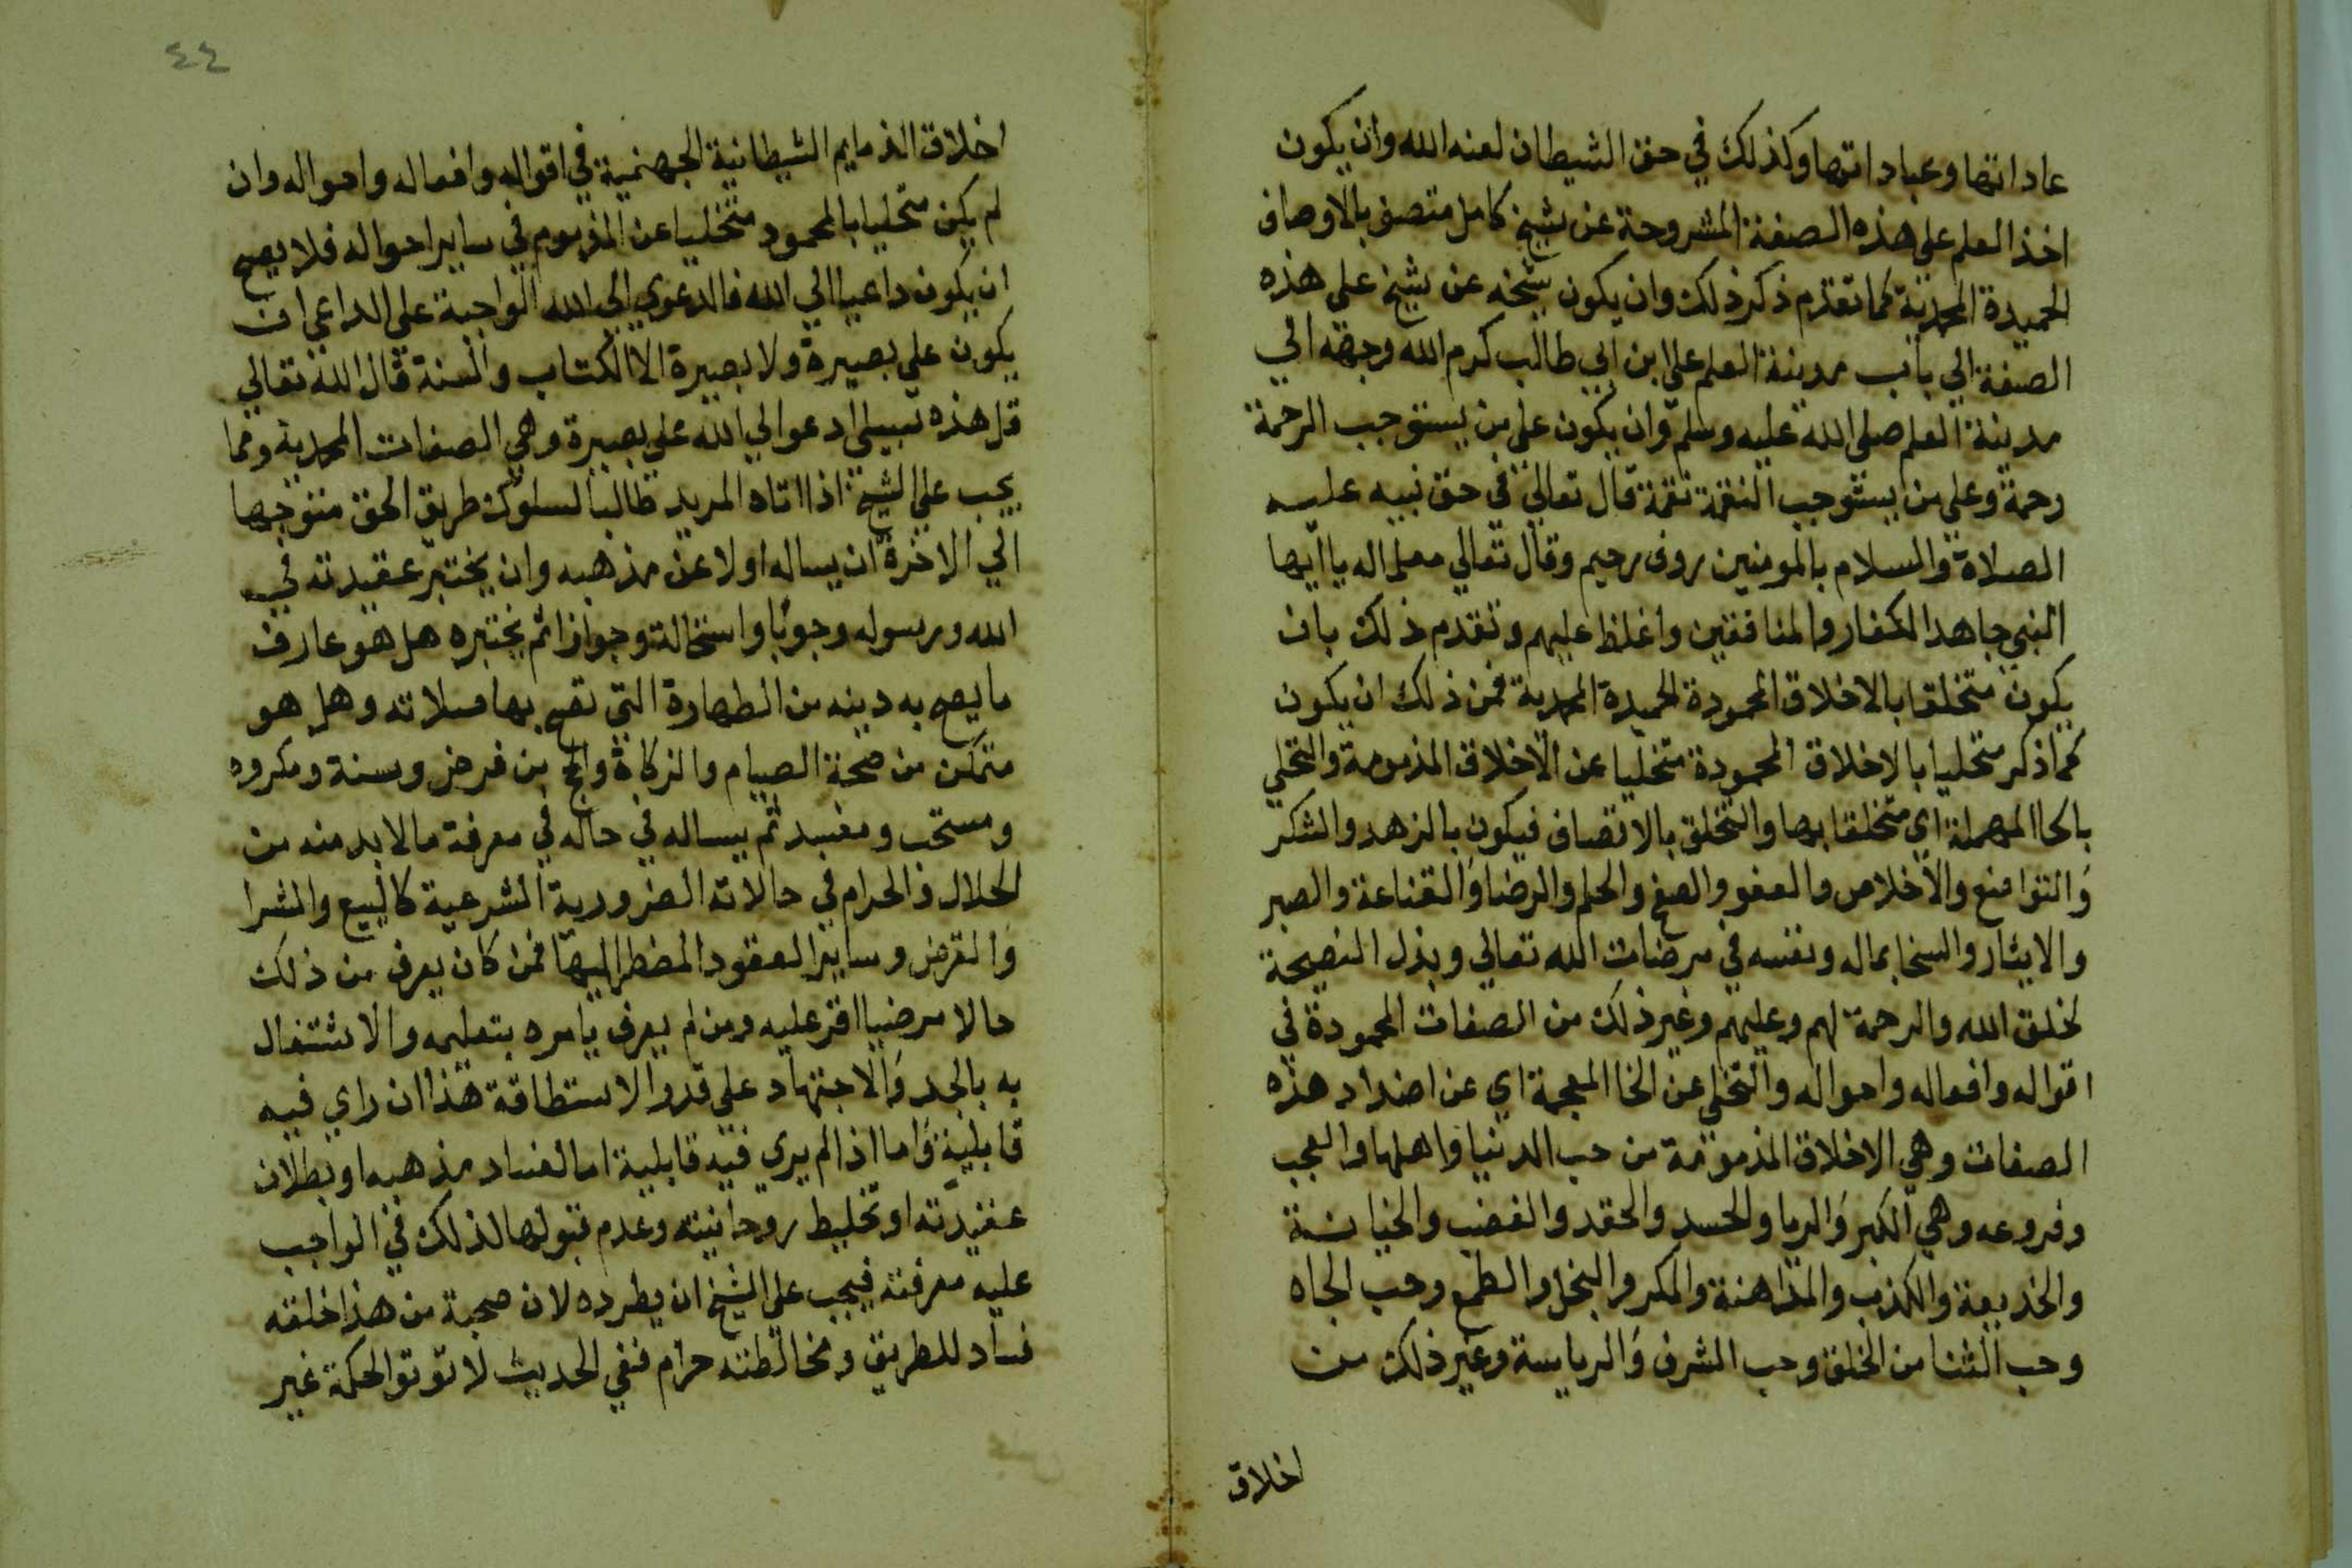 عاداتها وعباداتها وكذلك في حق الشيطان لعنه الله وان يكون
اخذ العلم على هذه الصفة المشروحة عن شيخ كامل متصف بالاوصاف
الحميدة المحمدية كما تقدم ذكر ذلك وان يكون شيخه عن شيخ على هذه
الصفة الي باب مدينة العلم علي ابن ابي طالب كرم الله وجهه الي
مدينة العلم صلى الله عليه وسلم وان يكون على من يستوجب الرحمة
رحمة وعلى من يستوجب النقمة نقمة قال تعالي في حق نبيه عليه
الصلاة والسلام بالمومنين روف رحيم وقال تعالي معلما له يا ايها
النبي جاهد الكفار والمنافقين واغلظ عليهم وتقدم ذلك بان
يكون متخلقا بالاخلاق المحمودة الحميدة المحمدية فمن ذلك ان يكون
كما ذكر متحليا بالاخلاق المحمودة متخليا عن الاخلاق المذمومة والتحلي
بالحا المهملة اي متخلقا بها والتخلق بالاتصاف فيكون بالزهد والشكر
والتواضع والاخلاص والعفو والصفح والحلم والرضا والقناعة والصبر
والايثار والسخا بماله ونفسه في مرضات الله تعالي وبذل النصيحة
لخلق الله والرحمة لهم وعليهم وغير ذلك من الصفات المحمودة في
اقواله وافعاله واحواله والتخلي عن الخا المعجمة اي عن اضداد هذه
الصفات وهي الاخلاق المذمومة من حب الدنيا واهلها والعجب
وفروعه وهي الكبر والريا والحسد والحقد والغضب والخيانة
والخديعة والكذب والمداهنة والمكر والبخل والطمع وحب الجاه
وحب الثنا من الخلق وحب الشرف والرياسة وغير ذلك من
اخلاق
٤٤
اخلاق الذمايم الشيطانية الجهنمية في اقواله وافعاله واحواله وان
لم يكن متحليا بالمحمود متخليا عن المذموم في ساير احواله فلا يصح
ان يكون داعيا الي الله فالدعوي الي الله الواجبة على الداعي ان
يكون على بصيرة ولا بصيرة الا الكتاب والسنة قال الله تعالي
قل هذه سبيلي ادعوا لي الله على بصيرة وهي الصفات المحمدية ومما
يجب على الشيخ اذا اتاه المريد طالبا لسلوك طريق الحق متوجها
الي الاخرة ان يساله اولا عن مذهبه وان يختبر عقيدته في
الله ورسوله وجوبا واستحالة وجوازا ثم يختبره هل هو عارف
ما يصح به دينه من الطهارة التي تصح بها صلاته وهل هو
متمكن من صحة الصيام والزكاة والحج من فرض وسنة ومكروه
ومستحب ومفسد ثم يساله في حاله في معرفة ما لابد منه من
الحلال والحرام في حالاته الضرورية الشرعية كالبيع والشرا
والقرض وساير العقود المضطر اليها فمن كان يعرف من ذلك
حالا مرضيا اقر عليه ومن لم يعرف يامره بتعليمه والاشتغال
به بالجد والاجتهاد على قدر الاستطاقة هذا ان راي فيه
قابلية واما اذا لم يري فيه قابلية اما لفساد مذهبه او بطلان
عقيدته او تخليط روحانيته وعدم قبولها لذلك في الواجب
عليه معرفته فيجب على الشيخ ان يطرده لان صحبة من هذا خلقه
فساد للطريق ومخالطته حرام ففي الحديث لا توتوا الحكمة غير